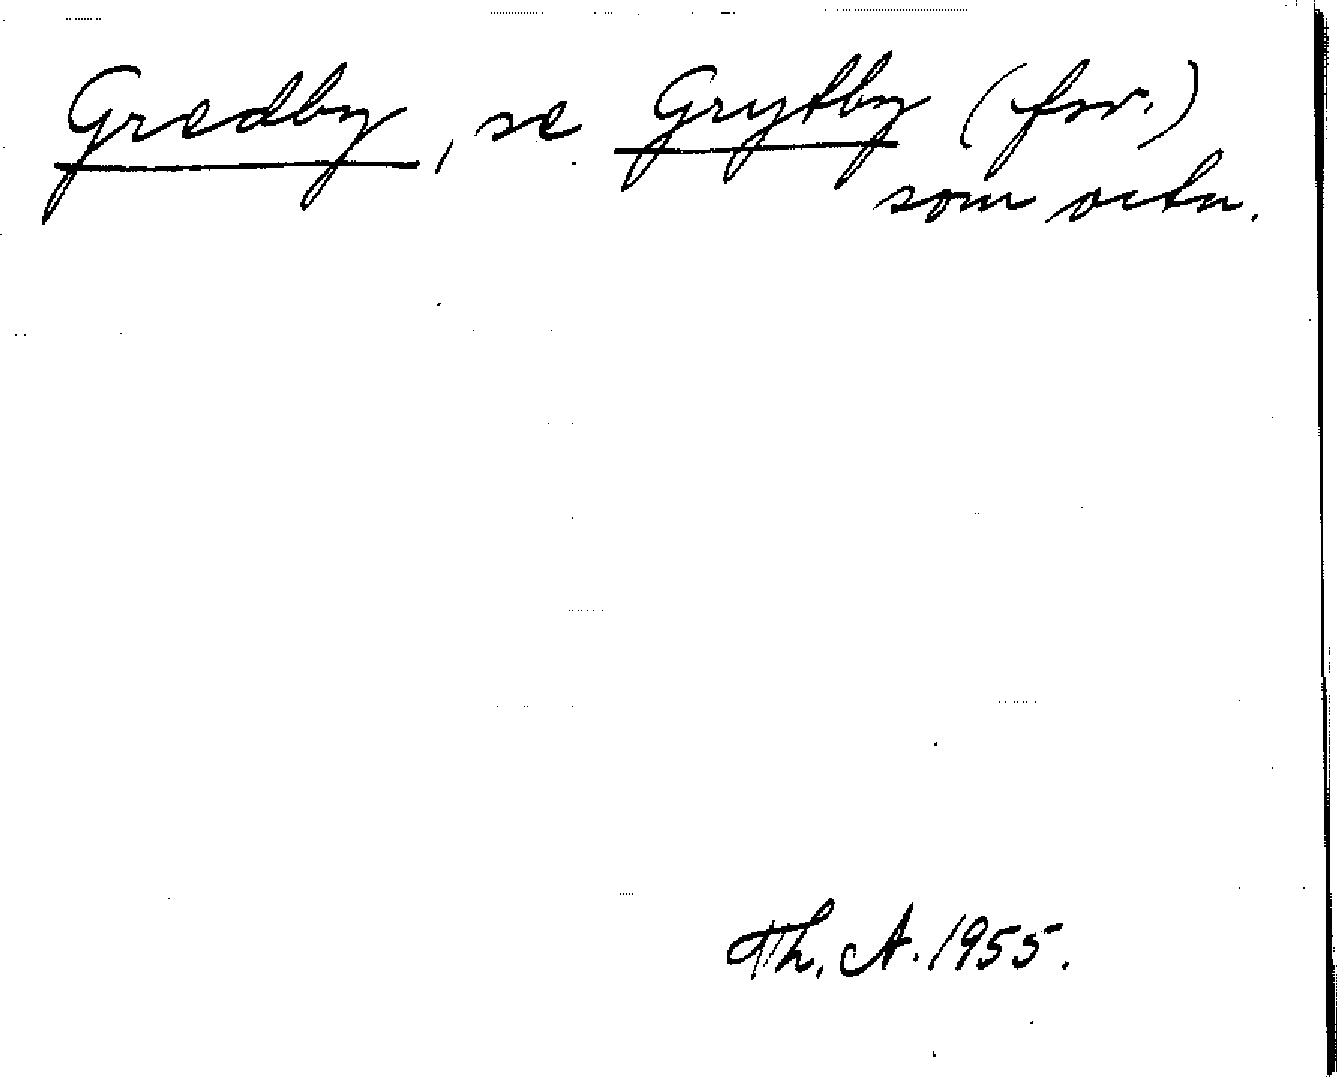 Gredby, se Grytby (fsv.)
som octn.
Th. A. 1955.